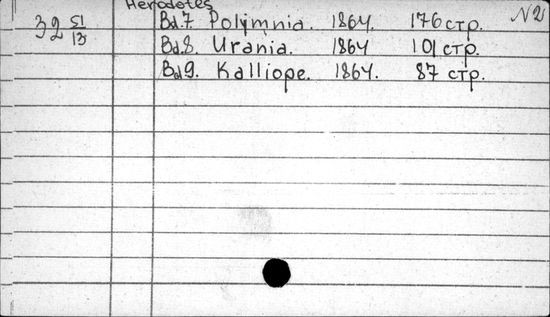 Herodotes
32 51/13 Bd 7. Polymnia. 1864. 176 стр. N 2
Bd 8. Urania. 1864 101 стр.
Bd 9. Kalliope. 1864. 87 стр.